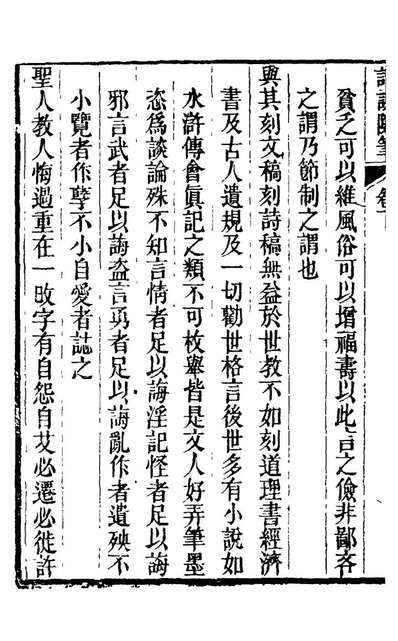 貧乏可以維風俗可以增福壽以此言之儉非鄙吝
之謂乃節制之謂也
與其刻文稿刻詩稿無益於世教不如刻道理書經濟
書及古人遺規及一切勸世格言後世多有小說如
水滸傳會眞記之類不可枚舉皆是文人好弄筆墨
恣爲談論殊不知言情者足以誨淫記怪者足以誨
邪言武者足以誨盜言勇者足以誨亂作者遺殃不
小覽者作孽不小自愛者誌之
聖人教人悔過重在一改字有自怨自艾必遷必徙許